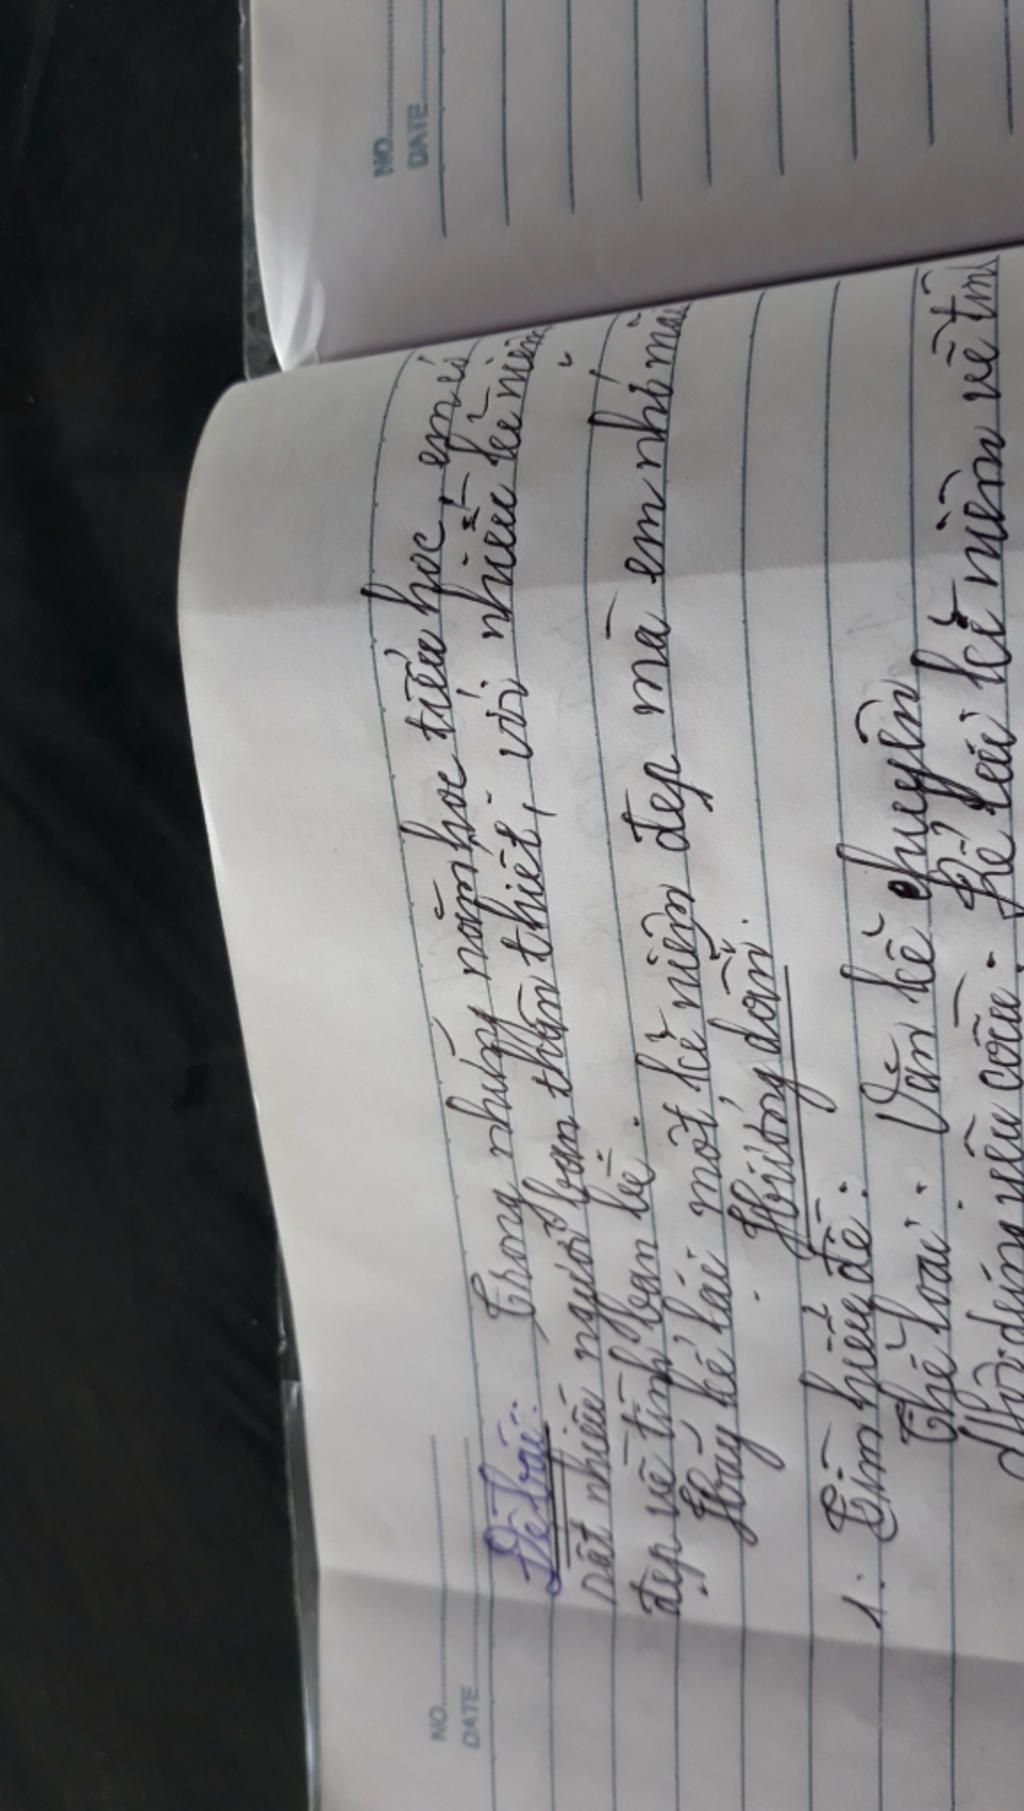 NO.
DATE
NO.
DATE
Đề bài: Trong những năm học tiểu học, em có
rất nhiều người bạn thân thiết, với nhiều kỉ niệm
đẹp về tình bạn bè.
Hãy kể lại một kỉ niệm đẹp mà em nhớ mãi
Hướng dẫn.
1. Tìm hiểu đề:
Thể loại: Văn kể chuyện
Nội dung yêu cầu: Kể lại kỉ niệm về tình